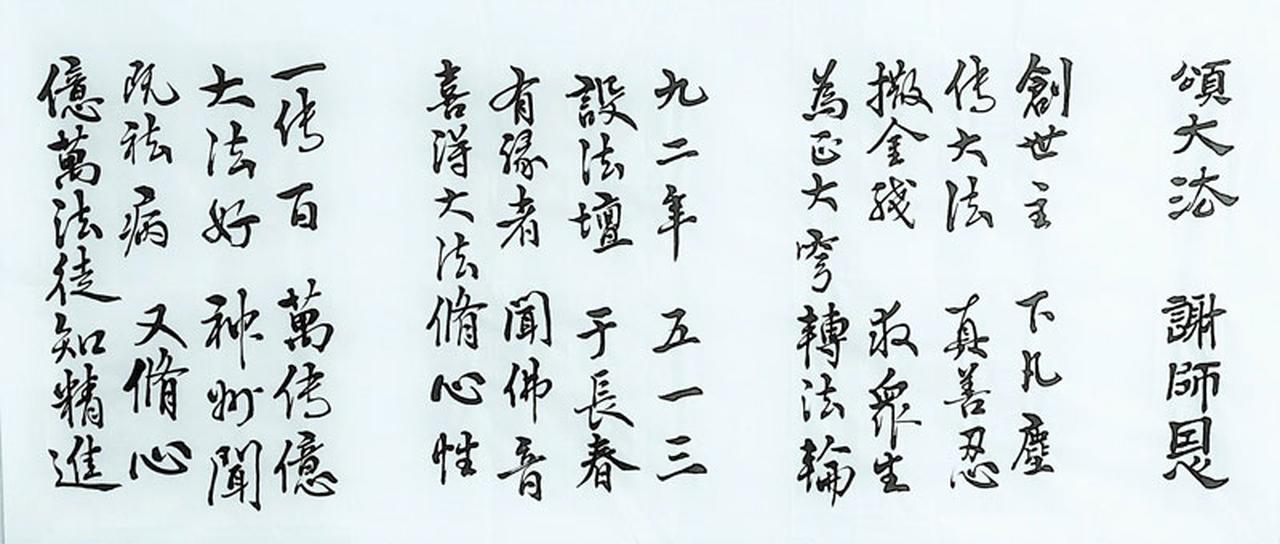 頌大法 謝師恩
創世主 下凡塵
传大法 真善忍
撒金线 救衆生
為正大穹轉法輪
九二年 五一三
設法壇 于長春
有緣者 聞佛音
喜得大法脩心性
一传百 萬传億
大法好 神州聞
既祛病 又脩心
億萬法徒知精進